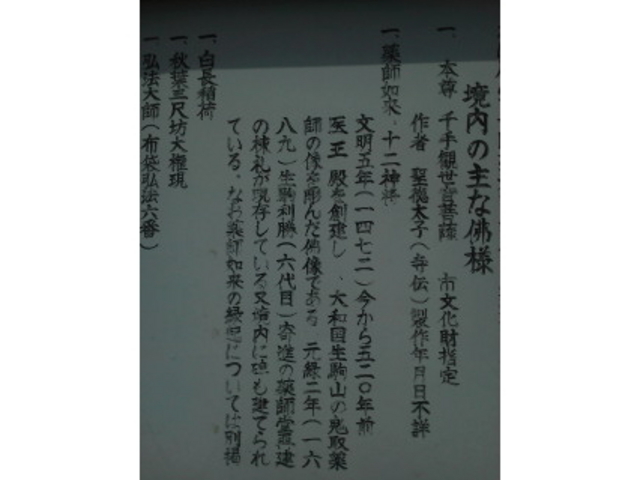 境内の主な佛様
一、本尊 千手観世音菩薩 市文化財指定
作者 聖徳太子(寺伝)製作年月日不詳
一、薬師如来、十二神将
文明五年(一四七二)今から五二〇年前
医王殿を創建し、大和国生駒山の鬼取薬
師の像を彫んだ佛像である 元禄二年(一六
八九)生駒利勝(六代目)寄進の薬師堂再建
の棟札が現存している又境内に碑も建てられ
ている、なお薬師如来の縁起については別掲
一、白長稲荷
一、秋葉三尺坊大権現
一、弘法大師(布袋弘法六番)